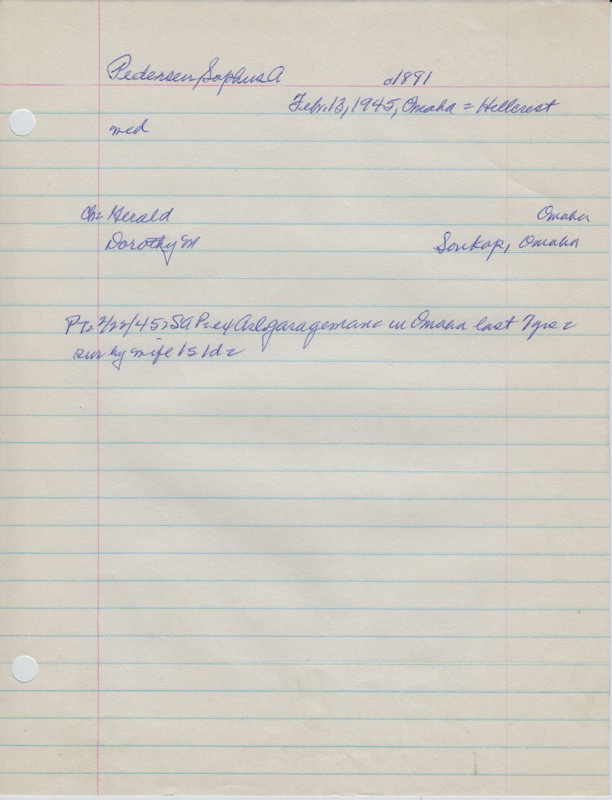 Pedersen, Sophus A c1891
Febr. 13, 1945, Omaha = Hillcrest
med
Ch= Herald Omaha
Dorothy M Soukop, Omaha
PT= 2/22/45=SAP=ex Arl garageman= in Omaha last 7yrs=
sur by wife 1s 1d=